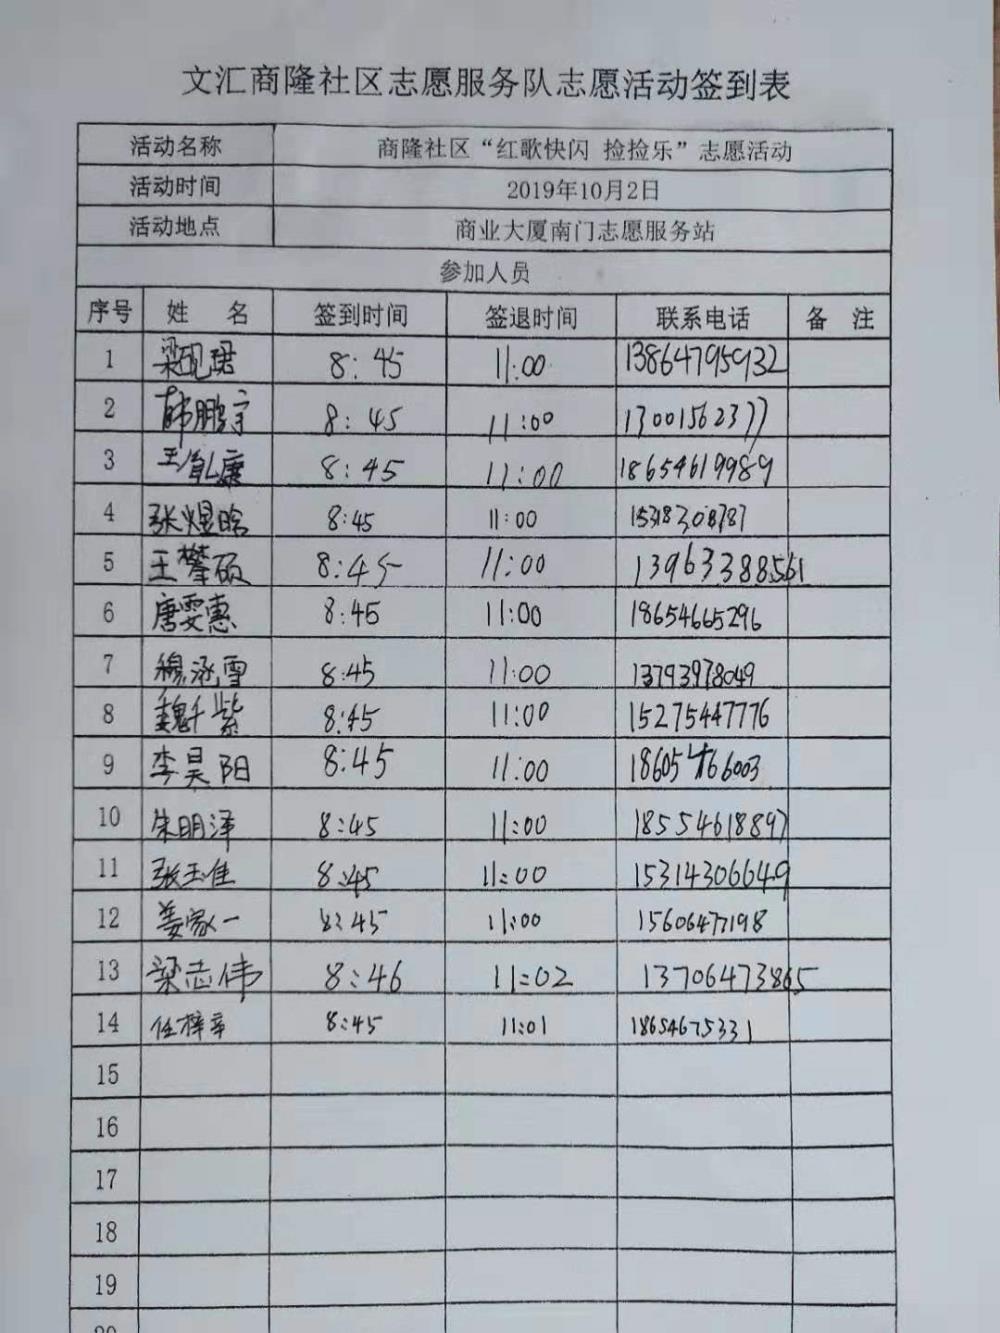 文汇商隆社区志愿服务队志愿活动签到表
活动名称 商隆社区“红歌快闪 捡捡乐”志愿活动
活动时间 2019年10月2日
活动地点 商业大厦南门志愿服务站
参加人员
序号 姓 名 签到时间 签退时间 联系电话 备 注
1 梁砚珺 8:45 11:00 13864795932
2 韩鹏宇 8:45 11:00 13001562377
3 8:45 11:00 18654619989
4 张煜晗 8:45 11:00 15318308787
5 王攀硕 8:45 11:00 13963388561
6 唐雯惠 8:45 11:00 18654665296
7 穆泓雪 8:45 11:00 13793978049
8 魏千紫 8:45 11:00 15275447776
9 李昊阳 8:45 11:00 18605466003
10 朱明泽 8:45 11:00 18554618897
11 张玉佳 8:45 11:00 15314306649
12 姜家一 8:45 11:00 15606477198
13 梁志伟 8:46 11:02 13706473865
14 任梓辛 8:45 11:01 18654675331
15
16
17
18
19